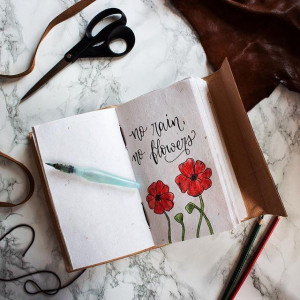 no rain,
no flowers